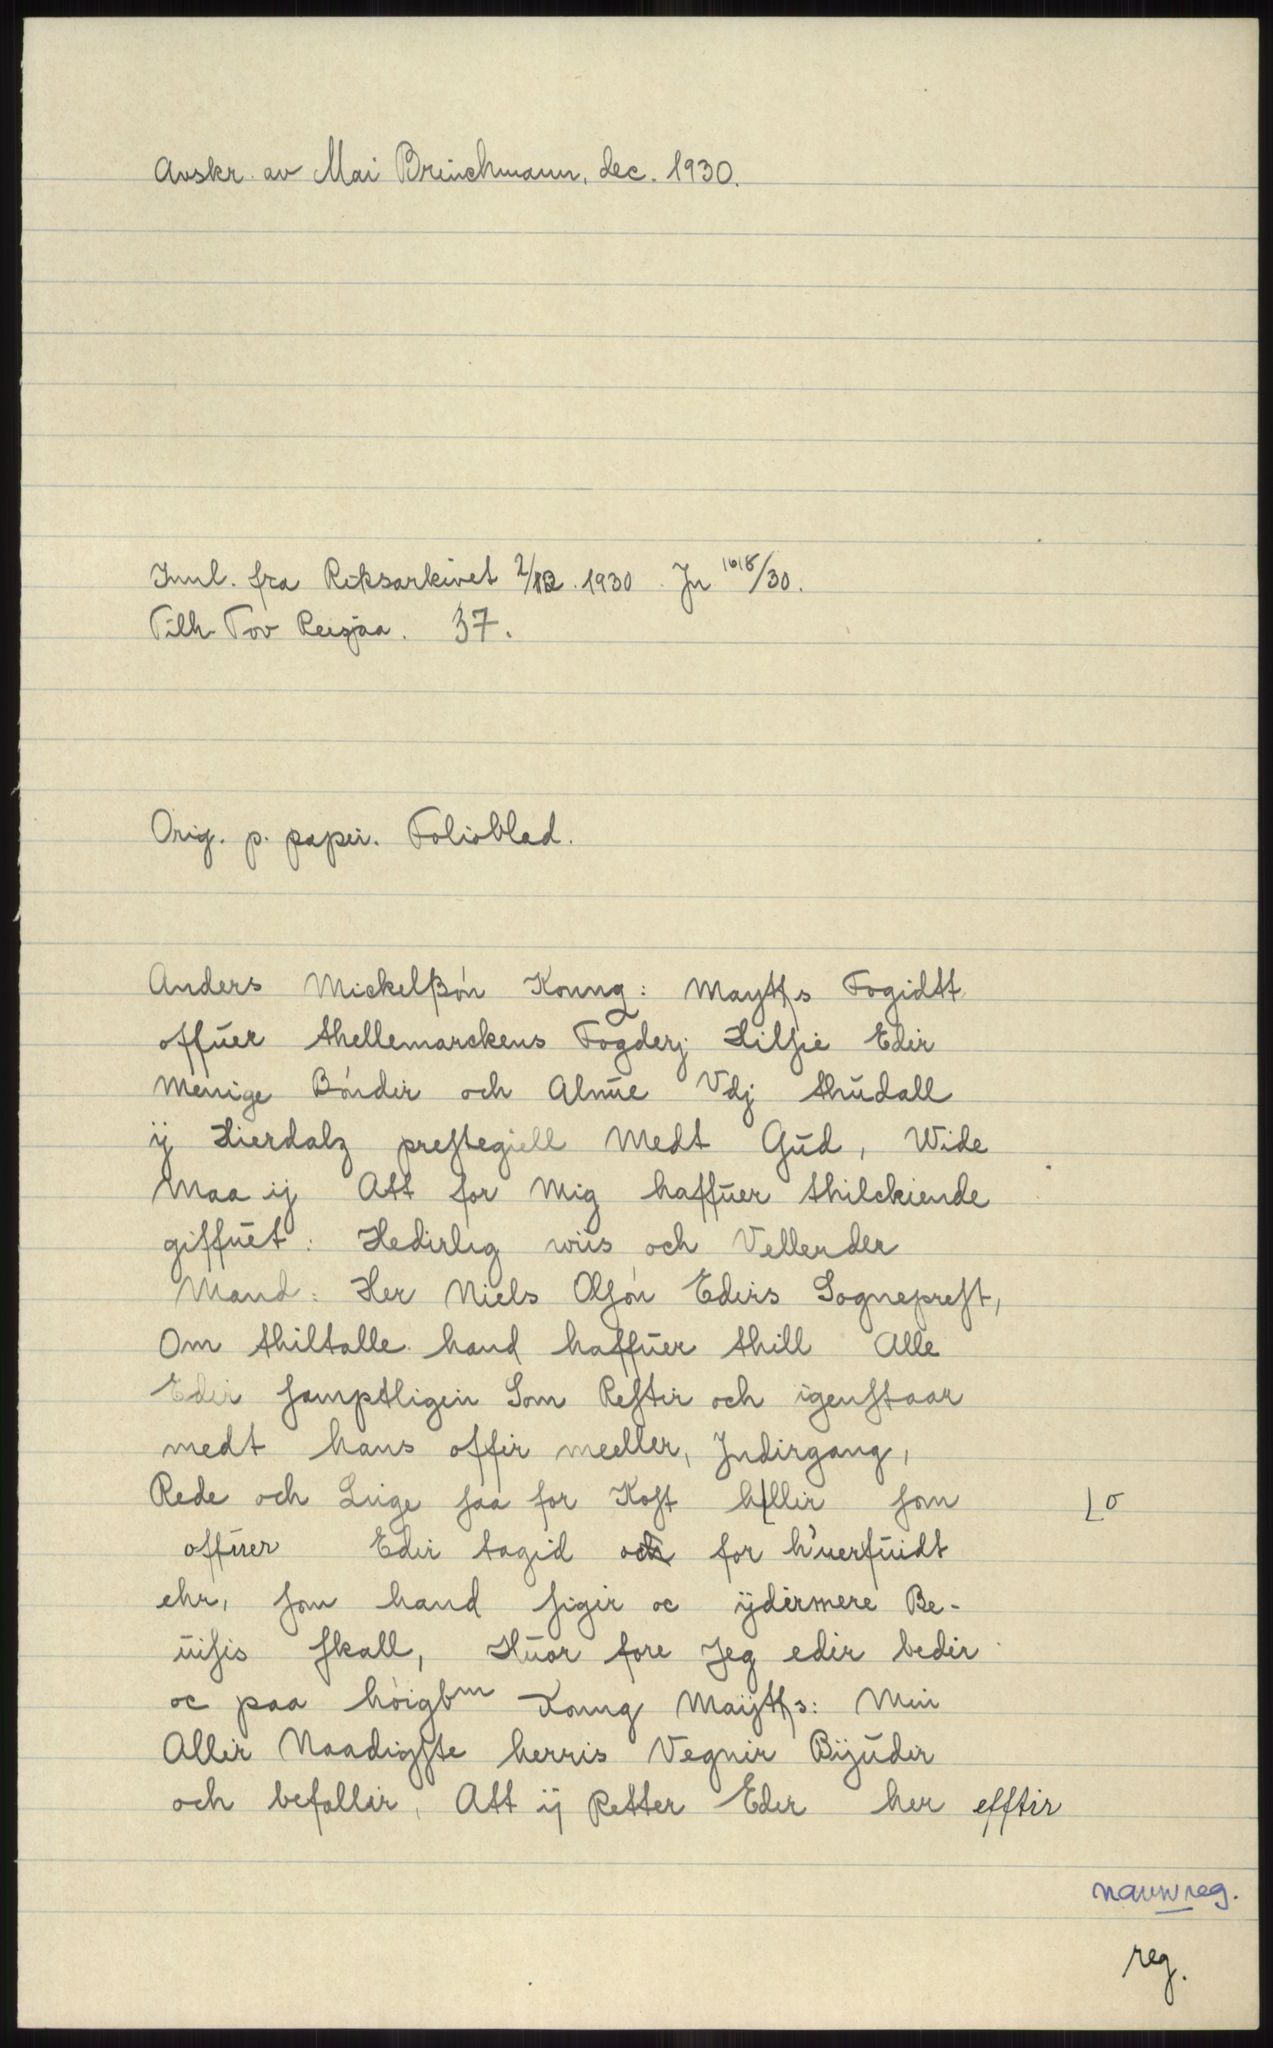 Avskr. av Mai Brinchmann, dec. 1930.
Innl. fra Riksarkivet 2/12. 1930. Jn 1618/30.
Tilh. Tov Reisjaa. 37.
Orig. p. papir. Folioblad.
Anders Mickelßón Konng: Maytts Fogidtt
offŭer thellemarckens Fogderj Hilſie Edir
Menige Bóndir och Almŭe Vdj thŭdall
ÿ Hierdalz preſtegiell Medt Gŭd, Wide
Maa ij Att for Mig haffŭer thilckiende
giffŭet: Hedirlig wiis och Vellerder
Mand: Her Niels Olſón Edirs Sognepreſt,
Om thiltalle hand haffŭer thill Alle
Edir ſamptligin Som Reſtir och igenſtaar
medt hans offir meller, Jndirgang,
Rede och Liige ſaa for Koſt h⌊llir ſom ⌊o
offŭer Edir tagid och for h'uerfŭidt
ehr, ſom hand ſigir oc ÿdirmere Be-
ŭiſis ſkall, Hŭor fore Jeg edir bedir
oc paa hóigbm Konng Maÿtts: Min
Allir Naadigſte herris Vegnir Bijŭdir
och befallir, Att ij Retter Eder her efftir
navnreg.
reg.